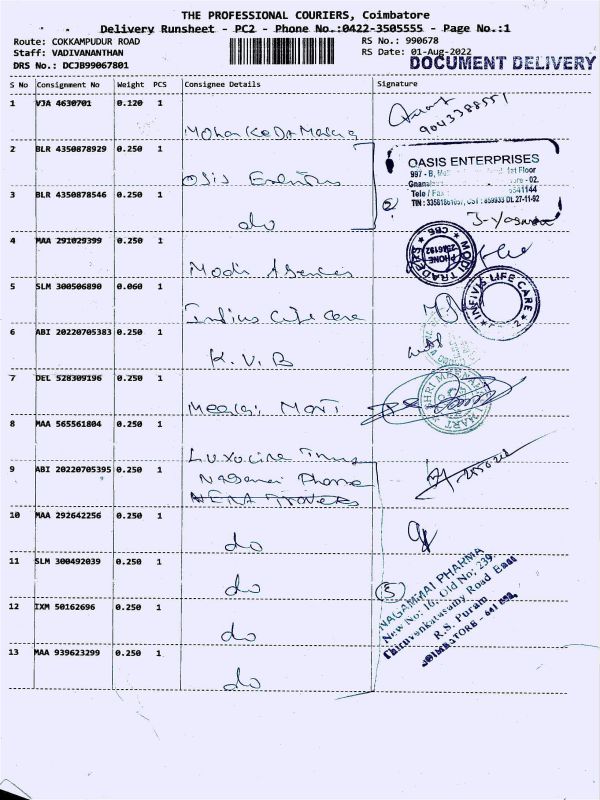 THE PROFESSIONAL COURIERS, Coimbatore
Delivery Runsheet - PC2 - Phone No.:0422-3505555 - Page No.:1
Route: COKKAMPUDUR ROAD
RS No.: 990678
Staff: VADIVANANTHAN
RS Date: 01-Aug-2022
DRS No.: DCJB99067801
DOCUMENT DELIVERY
S No Consignment No Weight PCS Consignee Details Signature
1 VJA 4630701 0.120 1
9043388551
2 BLR 4350878929 0.250 1
OASIS ENTERPRISES
1st Floor
3 BLR 4350878546 0.250 1
do
2
4 MAA 291029399 0.250 1
Modi Agencies
MODI TRADERS
CBE
PHONE
5 SLM 300506890 0.060 1
Infius Life Care
INFIVIS LIFE CARE
6 ABI 20220705383 0.250 1
K.V.B
7 DEL 528309196 0.250 1
Meenakshi Mart
8 MAA 565561804 0.250 1
9 ABI 20220705395 0.250 1
Nagamai Pharma
10 MAA 292642256 0.250 1
do
11 SLM 300492039 0.250 1
do
5
NAGAMMAI PHARMA
New No: 16, Old No; 239.
Thiruvenkatasamy Road East
R.S. Puram
COIMBATORE - 641 002.
12 IXM 50162696 0.250 1
do
13 MAA 939623299 0.250 1
do